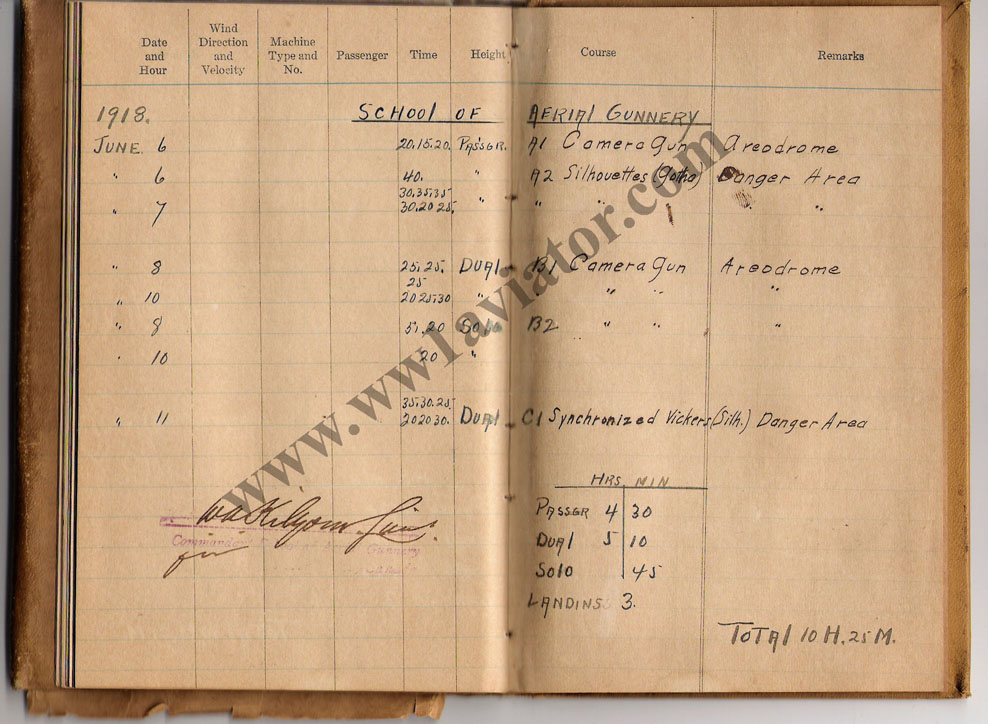 Date and Hour Wind Direction and Velocity Machine Type and No. Passenger Time Height Course Remarks
1918. SCHOOL OF AERIAL GUNNERY
JUNE 6 20.15.20. PASSGR. A1 Camera Gun Areodrome
" 6 40. " A2 Silhouettes (Gotha) Danger Area
30.35.35
" 7 30.20 25. " " " "
" 8 25.25. DUAL B1 Camera Gun Areodrome
25
" 10 20 25.30 " " " " "
" 8 5.20 Solo B2 " " "
" 10 20 "
35.30.25.
" 11 20 20 30. DUAL C1 Synchronized Vickers (Silh.) Danger Area
HRS. MIN
PASSGR 4 30
DUAL 5 10
SOLO 45
LANDINS 3.
TOTAL 10 H. 25 M.
for
Gunnery
www.1aviator.com